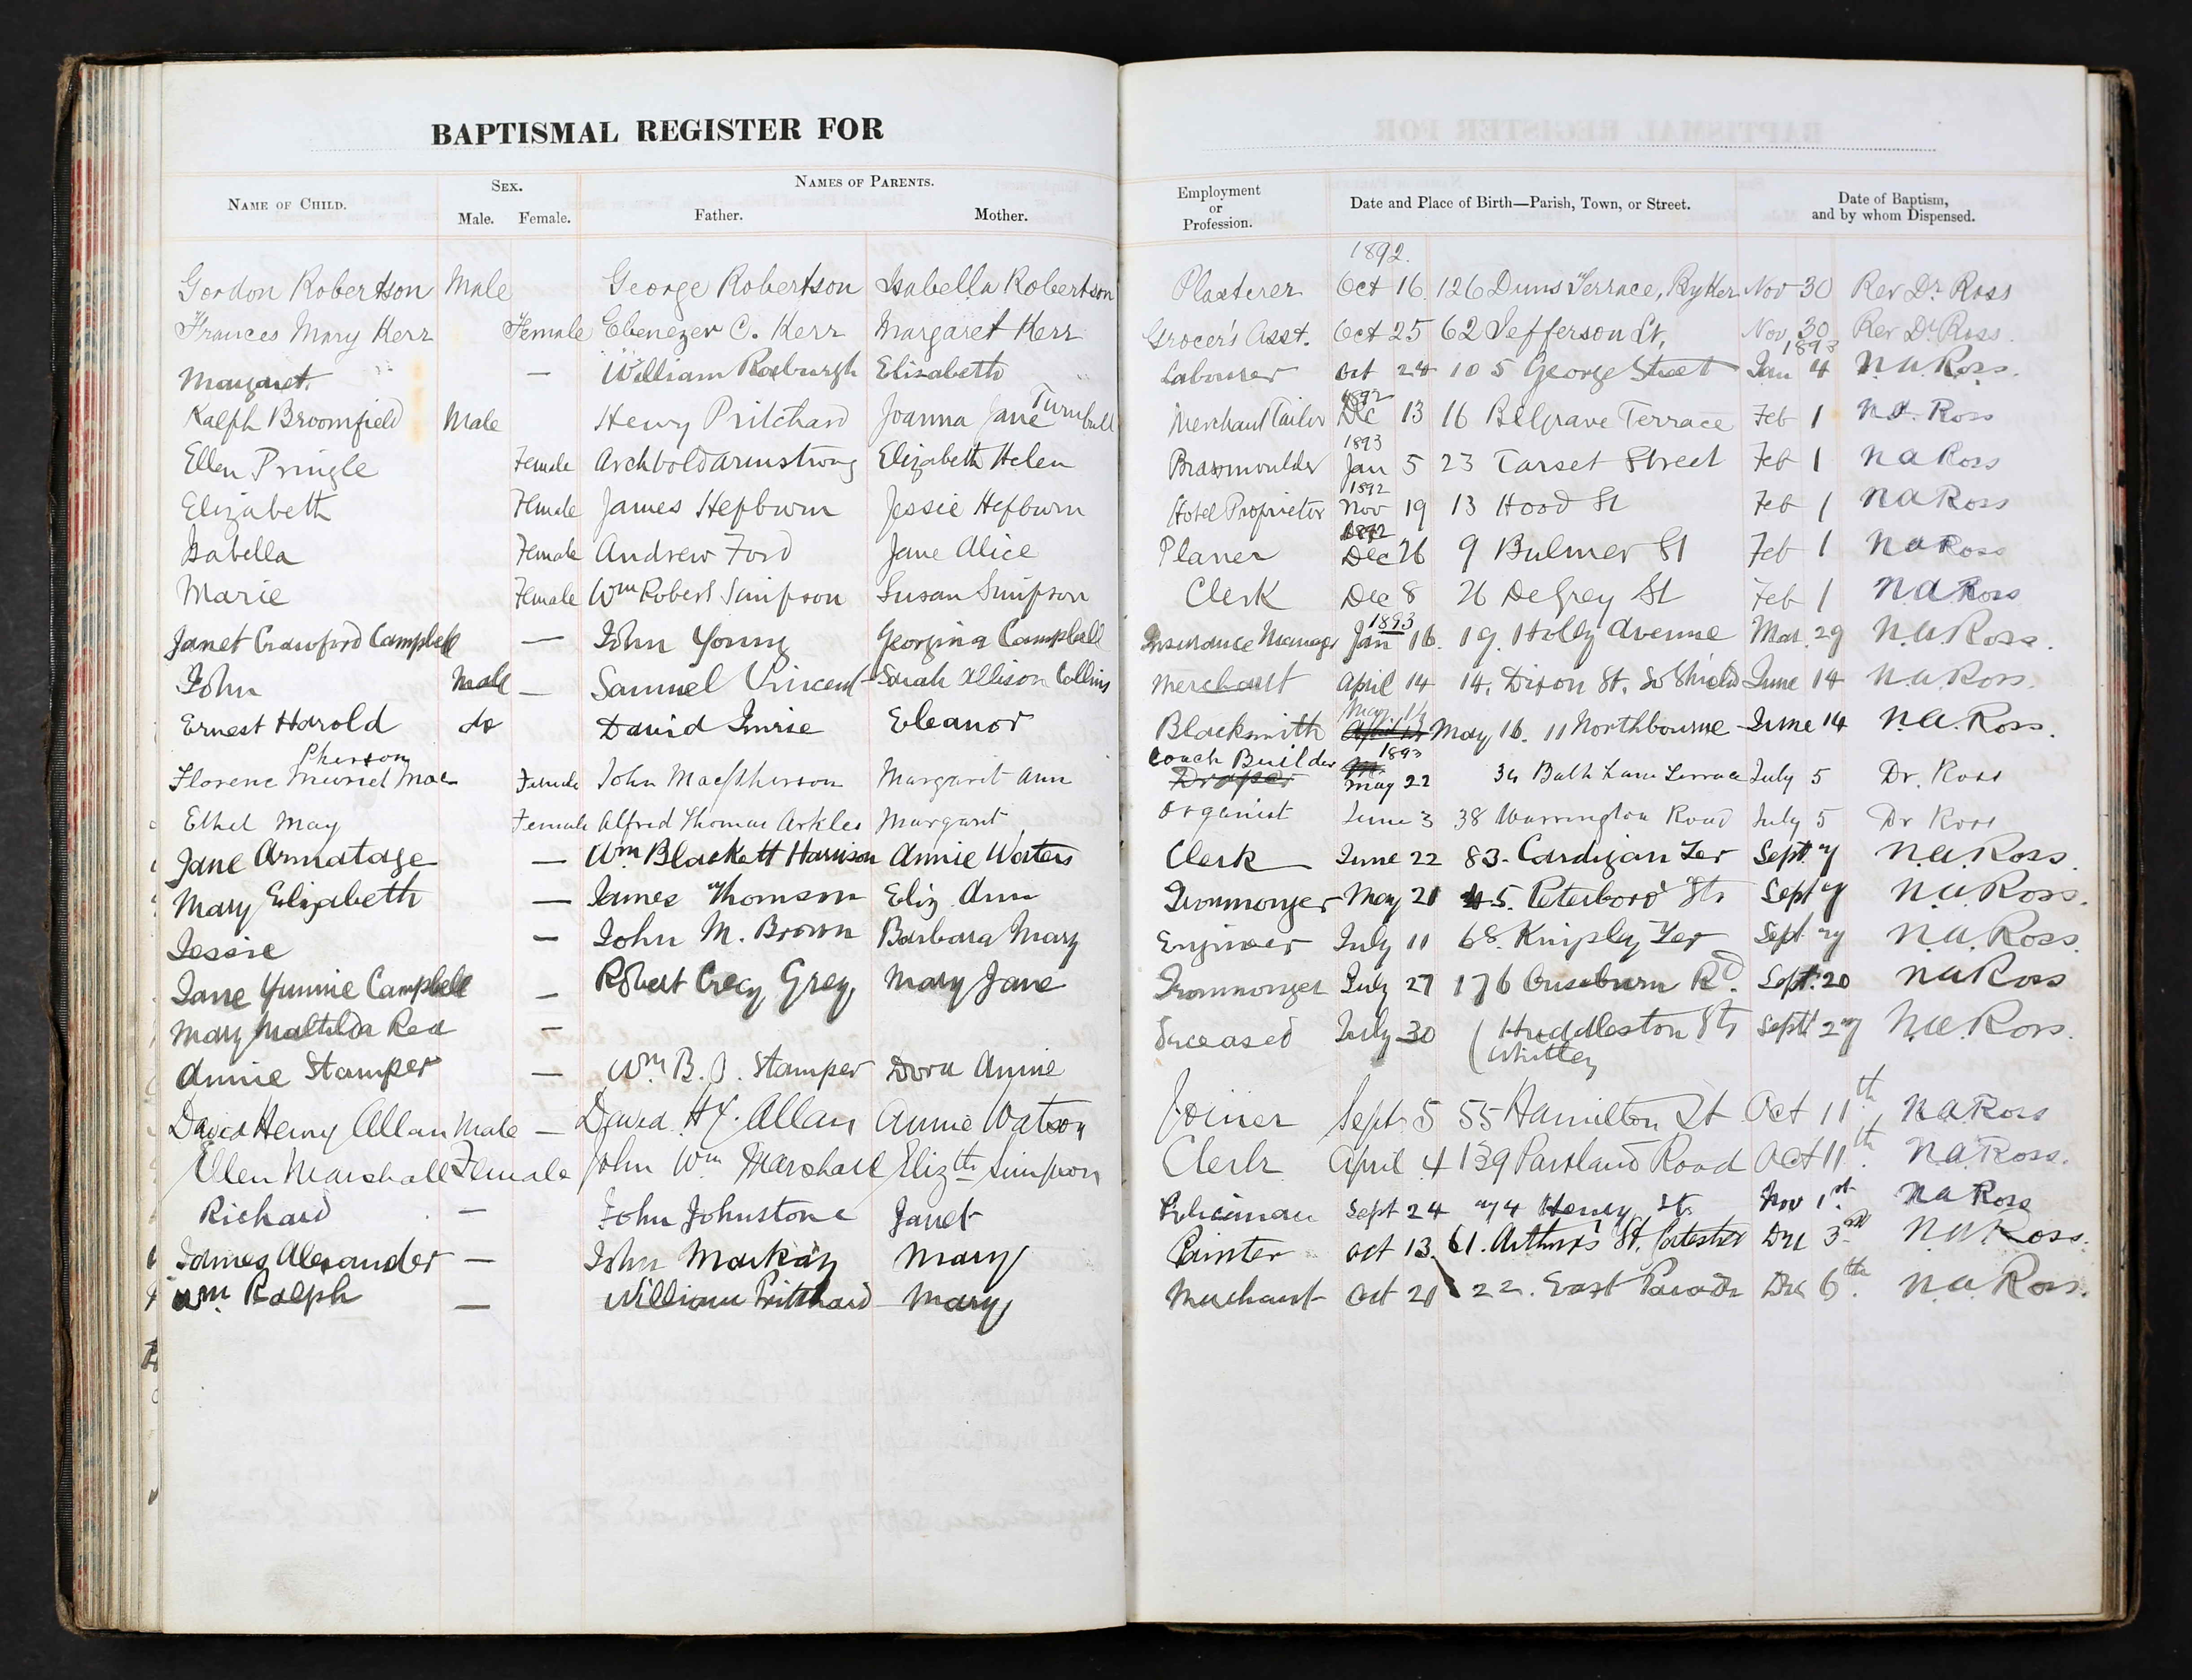 BAPTISMAL REGISTER FOR
NAME OF CHILD. SEX. Male. Female. NAMES OF PARENTS. Father. Mother. Employment or Profession. Date and Place of Birth—Parish, Town, or Street. Date of Baptism, and by whom Dispensed.
1892.
Gordon Robertson Male George Robertson Isabella Robertson Plasterer Oct 16 126 Duns Terrace, Ryker Nov 30 Rev Dr Ross
Frances Mary Kerr Female Ebenezer C. Kerr Margaret Kerr Grocer's Asst. Oct 25 62 Jefferson St, Nov 30 Rev Dr Ross
Margaret. — William Roxburgh Elizabeth Labourer Oct 24 105 George Street 1893 Jan 4 N.A. Ross.
Ralph Broomfield Male Henry Pritchard Joanna Jane Turnbull Merchant Tailor 1892 Dec 13 16 Belgrave Terrace Feb 1 N.A. Ross
Ellen Pringle Female Archbold Armstrong Elizabeth Helen Brassmoulder 1893 Jan 5 23 Tarset Street Feb 1 N A Ross
Elizabeth Female James Hepburn Jessie Hepburn Hotel Proprietor 1892 Nov 19 13 Hood St Feb 1 N A Ross
Isabella Female Andrew Ford Jane Alice Planer 1892 Dec 26 9 Bulmer St Feb 1 N A Ross
Marie Female Wm Robert Simpson Susan Simpson Clerk Dec 8 26 DeGrey St Feb 1 N A Ross
Janet Crawford Campbell — John Young Georgina Campbell Insurance Manager 1893 Jan 16. 19. Holly Avenue Mar. 29 N.A. Ross.
John Male — Samuel Vincent Sarah Allison Collins Merchant April 14 14. Dixon St. So Shields June 14 N.A. Ross.
Ernest Harold do David Imrie Eleanor Blacksmith May 16. 11 Northbourne June 14 N.A. Ross.
Florence Muriel MacPherson Female John MacPherson Margaret Ann Coach Builder Draper 1893 May 22 34 Bath Lane Terrace July 5 Dr. Ross
Ethel May Female Alfred Thomas Arkles Margaret Organist June 3 38 Warrington Road July 5 Dr Ross
Jane Armatage — Wm Blackett Harrison Annie Waters Clerk June 22 83. Cardigan Ter Sept. 7 N.A. Ross.
Mary Elizabeth — James Thomson Eliz Ann Ironmonger May 21 45. Peterboro' St Sept 7 N.A. Ross.
Jessie — John M. Brown Barbara Mary Engineer July 11 68. Kingsley Ter Sept 7 N.A. Ross.
Jane Campbell — Robert Grey Mary Jane Ironmonger July 27 176 Ouseburn Rd. Sept. 20 N A Ross
Mary Matilda Rea — Deceased July 30 Huddleston St Whitley Sept 27 N.A. Ross.
Annie Stamper — Wm B. J. Stamper Dora Annie
David Henry Allan Male — David Hy. Allan Annie Watson Joiner Sept 5 55 Hamilton St Oct 11th N A Ross
Ellen Marshall Female John Wm Marshall Elizth Simpson Clerk April 4 139 Portland Road Oct 11th. N.A. Ross.
Richard — John Johnstone Janet Policeman Sept 24 74 Henry St Nov 1st N A Ross
James Alexander — John Mackay Mary Painter Oct 13. 61. Arthur's St. Gateshd Dec 3rd N.A. Ross.
Wm Ralph — William Pritchard Mary Merchant Oct 21 22. East Parade Dec 6th. N.A. Ross.